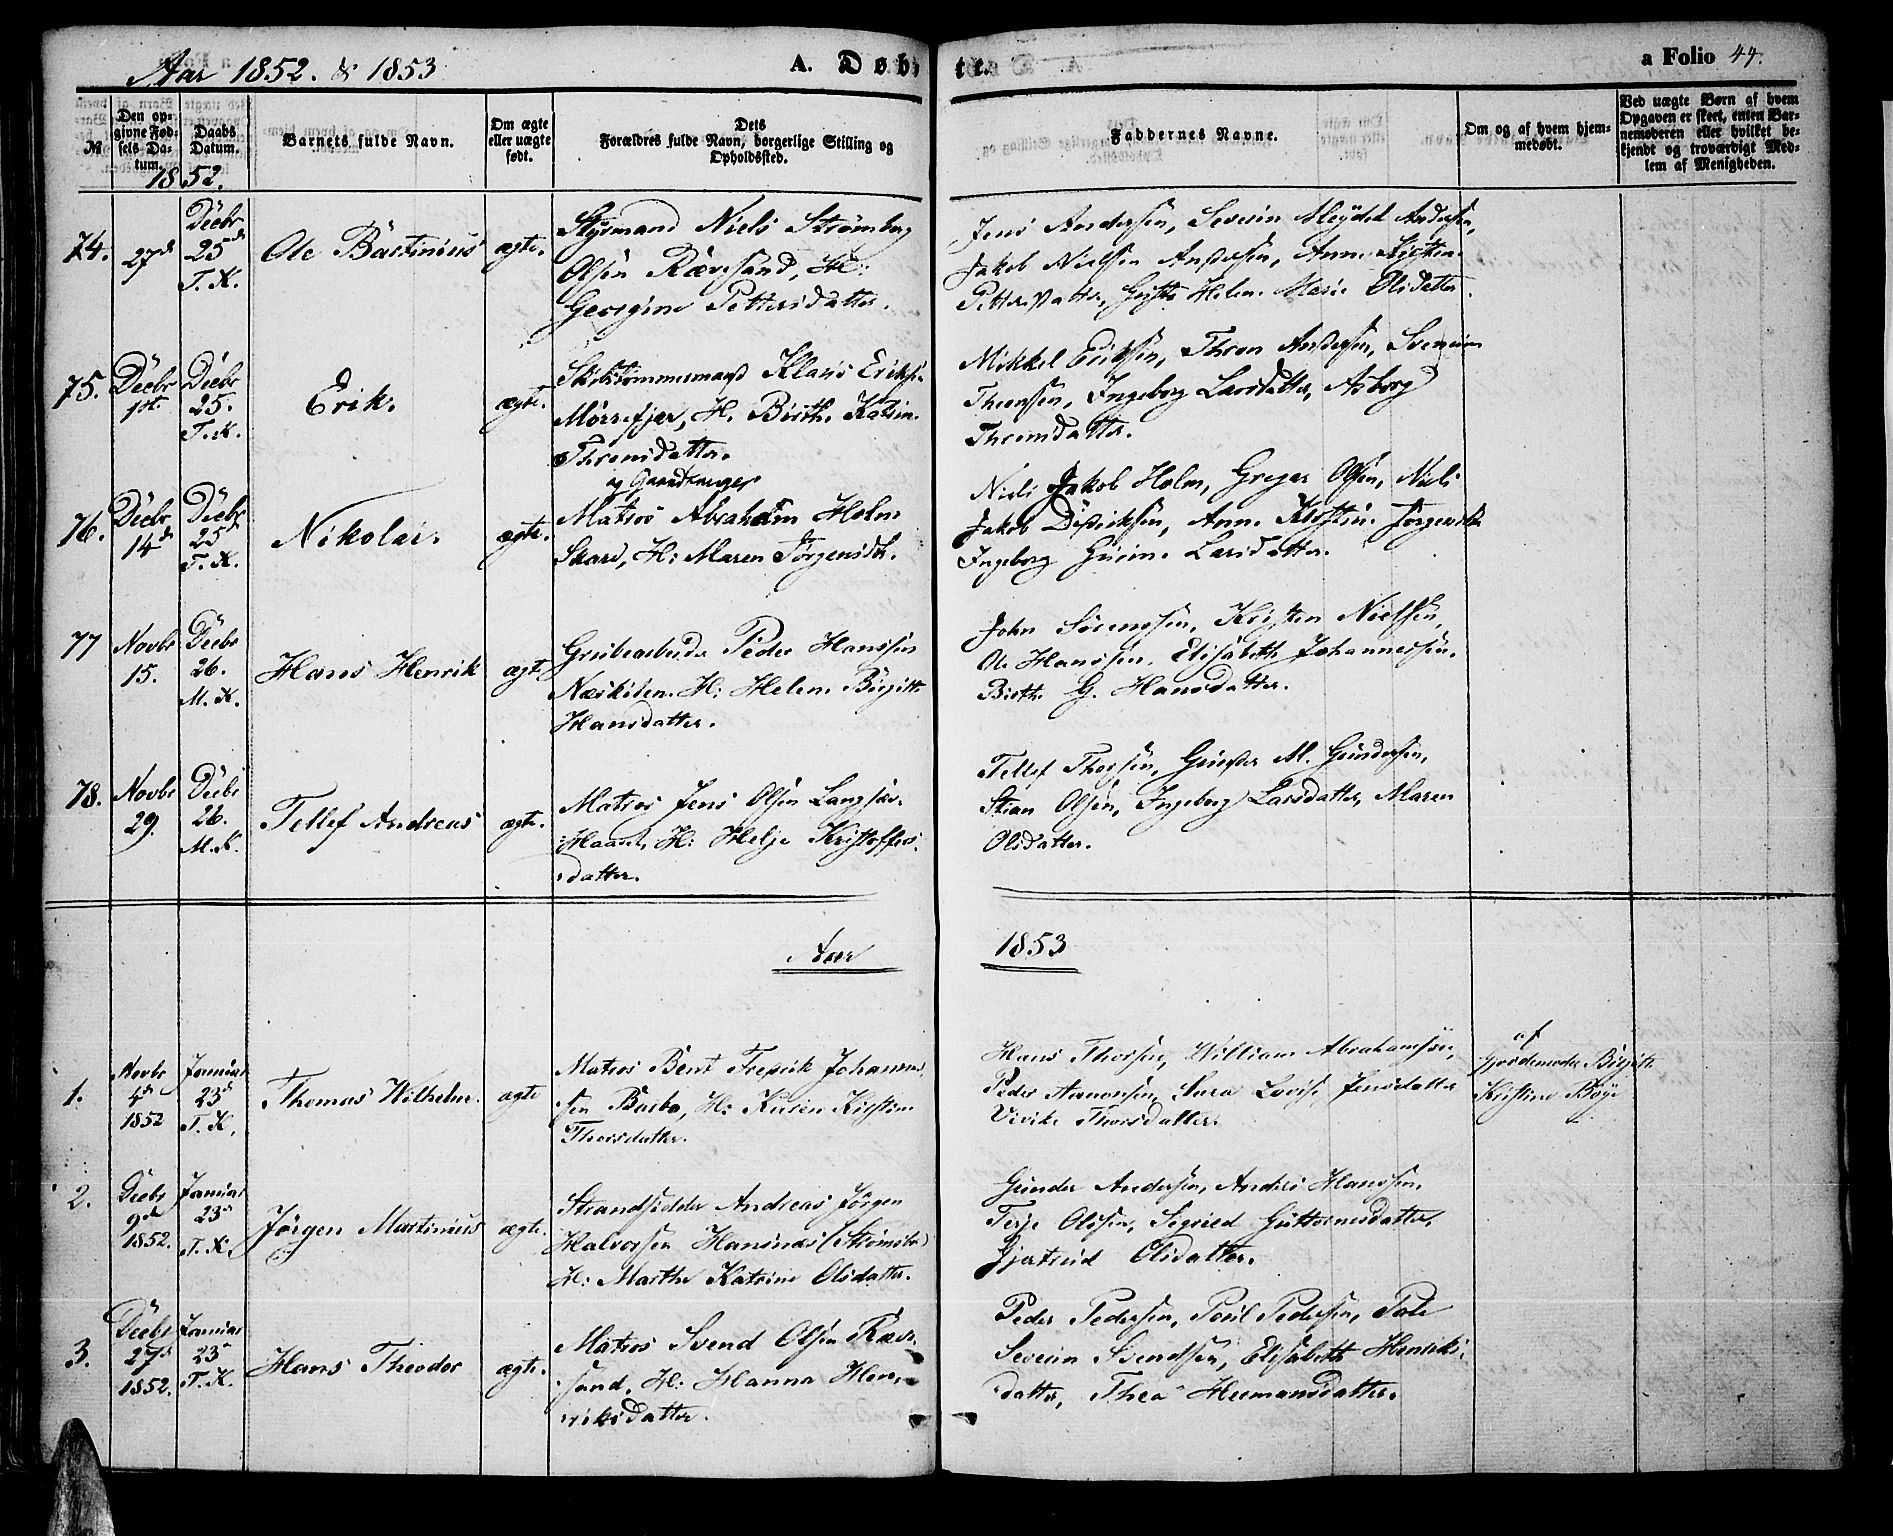 Aar 1852. & 1853
A. Døbte.
a Folio 44.
№
Den opgivne Fødsels Datum.
Daabs Datum.
Barnets fulde Navn.
Om ægte eller uægte født.
Dets Forældres fulde Navn, borgerlige Stilling og Opholdssted.
Faddernes Navne.
Om og af hvem hjemmedøbt.
Ved uægte Børn af hvem Opgaven er skeet, enten Barnemoderen eller hvilket bekjendt og troværdigt Medlem af Menigheden.
1852.
74. 27de Decbr 25de T. K. Ole Bastinius ægte.
Styrmand Niels Strømberg
Olsen Rævesand, H:
Georgine Pettersdatter.
Jens Andersen, Severin Meydel Andersen,
Jakob Nielsen Andersen, Anne Kirsten
Pettersdatter, Helene Marie Olsdatter.
75. Decbr 1ste Decbr 25. T. K. Erik. ægte.
Skibstømmermand Klaus Eriks.
Mørrefjær, H. Birthe Katrine
Thronsdatter.
Mikkel Eriksen, Thron Andersen, Severin
Thronsen, Ingeborg Larsdatter, Asborg
Thronsdatter.
76. Decbr 14de Decbr 25de T. K. Nikolai. ægte.
Matros Abraham Holm
Skare, H: Maren Jørgensdtr.
Niels Jakob Holm, Greger Olsen, Niels
Jakob Didriksen, Anne Kirstine Jørgensdtr
Ingeborg Gurine Larsdatter.
77 Novbr 15. Decbr 26. M. K. Hans Henrik ægte
Grubearbeider Peder Hanssen
Naskilen. H: Helene Birgitte
Hansdatter.
John Sørensen, Kristen Nielsen,
Ole Hanssen, Elisabeth Johannessen.
Birthe G. Hansdatter.
78. Novbr 29. Decbr 26. M. K. Tellef Andreas ægte.
Matros Jens Olsen Langsæv.
Haanl. H: Helje Kristoffers-
datter.
Tellef Thorsen, Gunder M. Gundersen,
Stian Olsen, Ingeborg Larsdatter, Maren
Olsdatter.
Aar 1853
1. Novbr 4de 1852 Januar 23de T. K. Thomas Wilhelm. ægte
Matros Bent Fredrik Johannes-
sen Barbo, H: Karen Kirstine
Thorsdatter.
Hans Thorsen, William Abrahamsen,
Peder Aamonsen, Sara Lovise Jensdatter
Vivike Thorsdatter.
af
Gjordemoder Birgitte
Kristine Bøye
2. Decbr 9de 1852. Januar 23de T. K. Jørgen Martinius ægte.
Strandsidder Andreas Jørgen
Halvorsen Hansnæs (Strømsbo)
H: Marthe Katrine Olsdatter.
Gunder Andersen, Anders Hanssen,
Terje Olsen, Sigrid Guttormsdatter,
Gjertrud Olsdatter.
3. Decbr 27de 1852. Januar 23de T. K. Hans Theodor ægte.
Matros Svend Olsen Ræve-
sand, H: Hanna Hen-
riksdatter.
Peder Pedersen, Poul Pedersen,
Severin Svendsen, Elisabeth Henriks-
datter, Thea Hermansdatter.